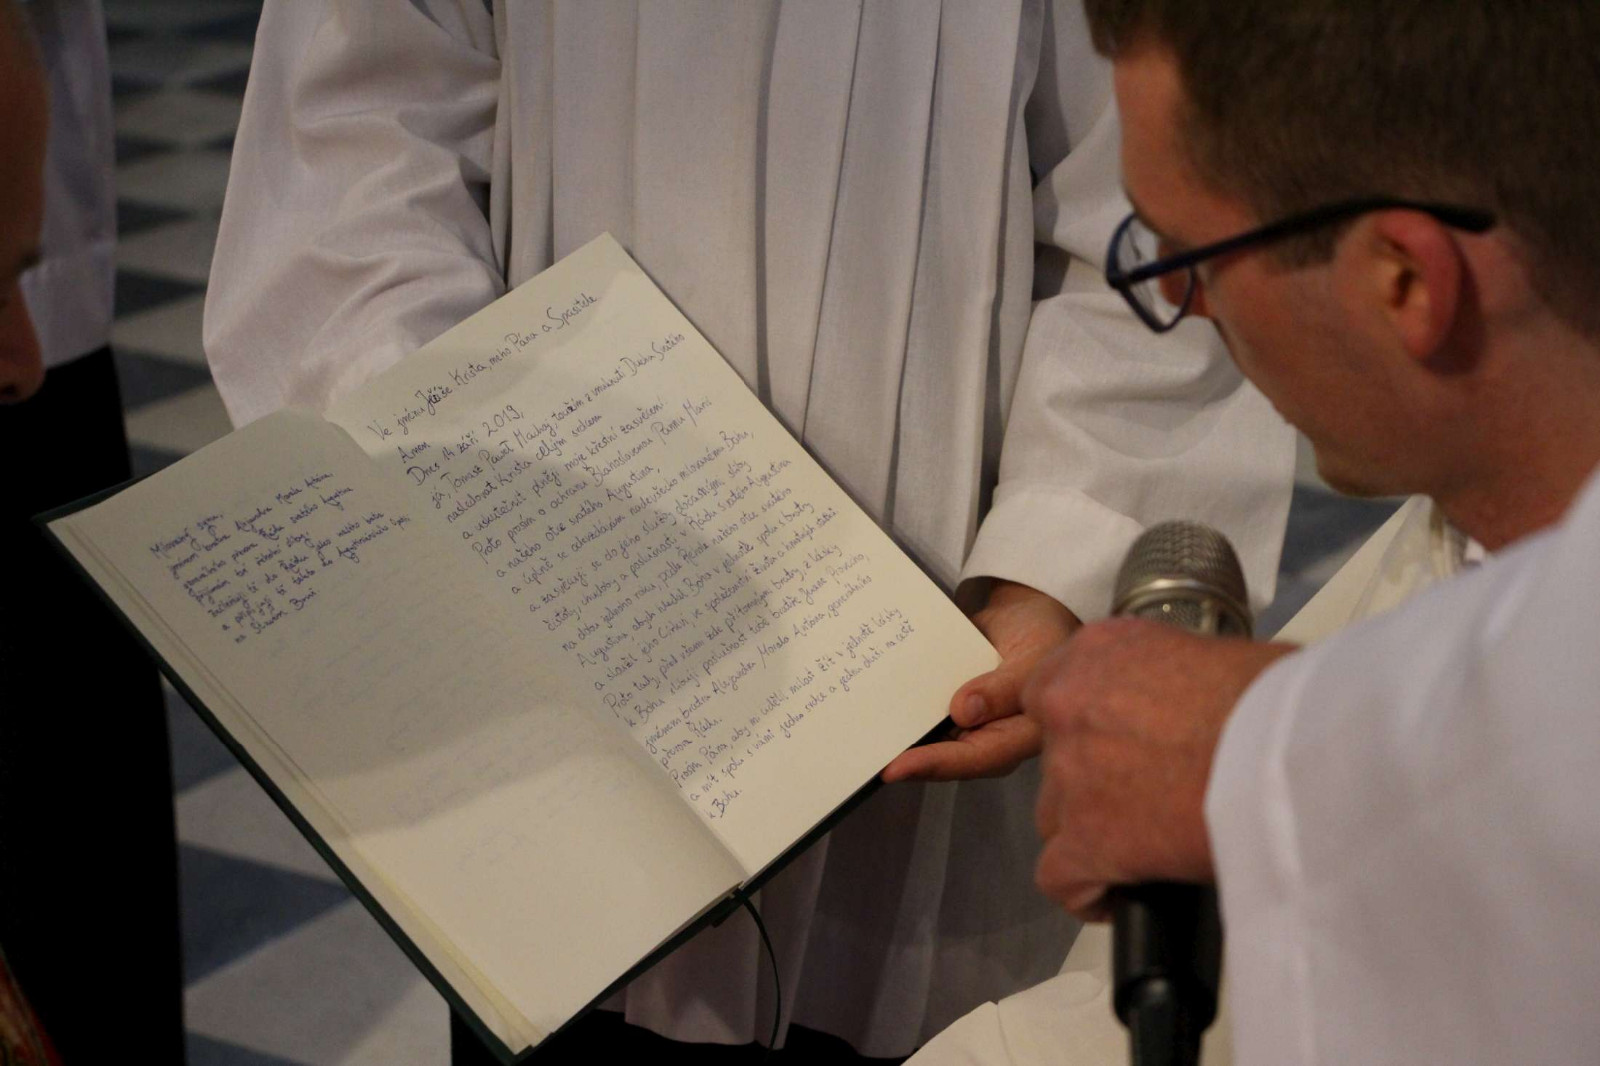 Milovaný synu,
jménem bratra Alejandra Morala Antóna,
generálního převora Řádu svatého Augustina
přijímám tvé řeholní sliby
začleňuji tě do Řádu jako našeho bratra
a připojuji tě do Augustiniánského
na Starém Brně
Ve jménu Ježíše Krista, mého Pána a Spasitele
Amen
Dnes 14. září 2019,
já, Tomasz Paweł, toužím z vnuknutí Ducha Svatého
následovat Krista celým srdcem
a uskutečnit plněji moje křestní zasvěcení
Proto prosím o ochranu Blahoslavenou Pannu Marii
a našeho otce svatého Augustina,
a úplně se odevzdávám nadevšecko milovanému Bohu,
a zasvěcuji se do jeho služby dočasnými sliby
čistoty, chudoby, a poslušnosti v Řádu svatého Augustina
na dobu jednoho roku, podle Řehole našeho otce svatého
Augustina abych hledal Boha v jednotě spolu s bratry
a sloužil jeho Církvi, ve společenství života a
Proto tedy, před všemi zde přítomnými bratry, z lásky
k Bohu slibuji poslušnost tobě bratře Juane Provecho,
jménem bratra Alejandra Morala Antóna, generálního
převora Řádu.
Prosím Pána, aby mi udělil milost žít v jednotě lásky
a mít spolu s vámi jedno srdce a jednu duši na cestě
k Bohu.